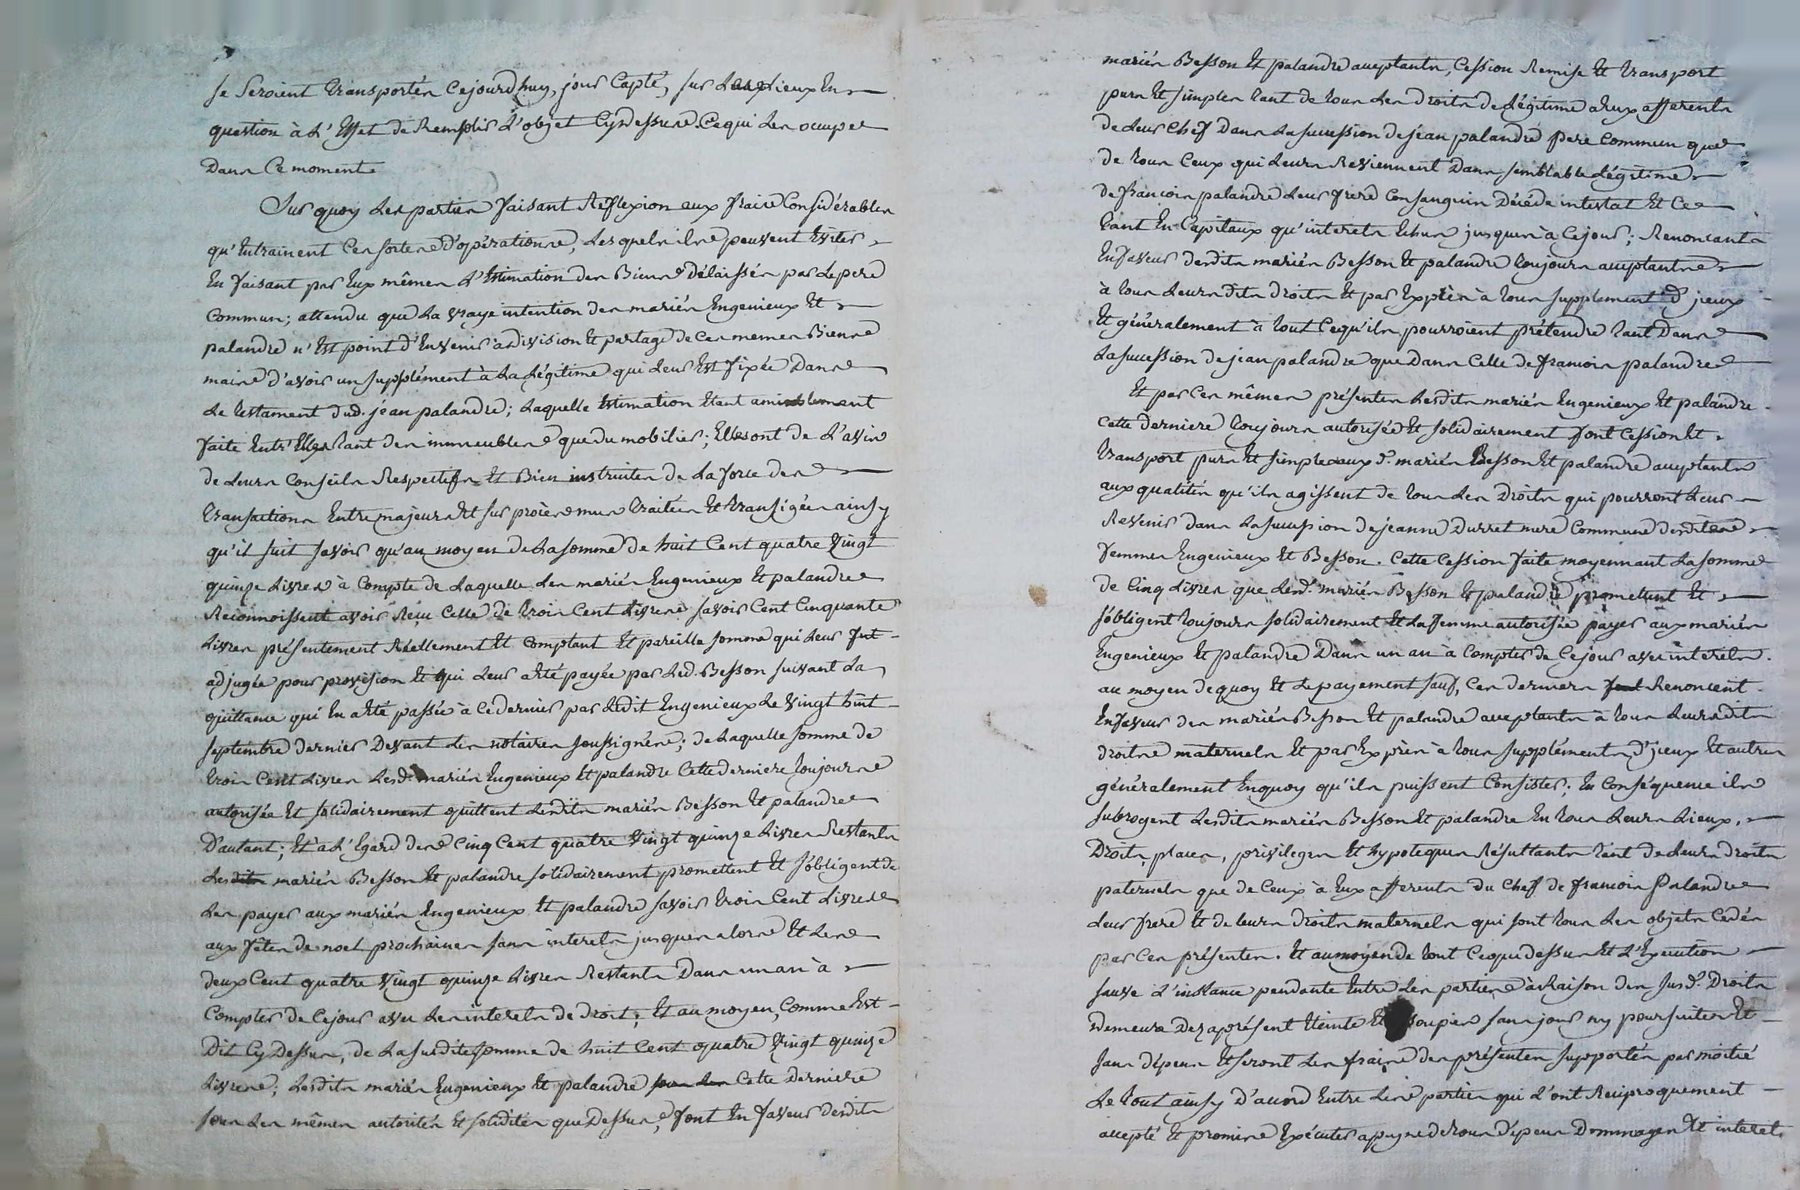 se seroient transportés cejourd'huy, jour capté, sur les lieux en
question à l'effet de remplir l'objet cydessus. Ce qui les occupe
dans ce moment.
Sur quoy les parties faisant réflexion aux frais considérables
qu'entrainent ces sortes d'opérations, lesquels ils peuvent éviter
en faisant par eux mêmes l'estimation des biens délaissés par le pere
commun; attendu que la vraye intention des mariés Engenieux et
palandre n'est point d'en venir à division et partage de ces memes biens
mais d'avoir un supplément à la légitime qui leur est fixée dans
le testament dud. jean palandre; laquelle estimation étant amiablement
faite entr'elles tant des immeubles que du mobilier; elles ont de l'avis
de leurs conseils respectifs et bien instruites de la force des
transactions entre majeurs et sur procès mus traitées et transigées ainsy
qu'il suit savoir qu'au moyen de la somme de huit cent quatre vingt
quinze livres à compte de laquelle les mariés Engenieux et palandre
reconnoissent avoir réçu celle de trois cent livres savoir cent cinquante
livres présentement réellement et comptant et pareille somme qui leur fut
adjugée pour provision et qui leur a été payée par led. Besson suivant la
quittance qui en a été passée à ce dernier par ledit Engenieux le vingt huit
septembre dernier devant les notaires soussignés; de laquelle somme de
trois cent livres lesd. mariés Engenieux et palandre cette derniere toujours
autorisée et solidairement quittent lesdits mariés Besson et palandre
d'autant; et à l'égard des cinq cent quatre vingt quinze livres restants
lesdits mariés Besson et palandre solidairement promettent et s'obligent de
les payer aux mariés Engenieux et palandre savoir trois cent livres
aux fêtes de noel prochaines sans interets jusques alors et les
deux cent quatre vingt quinze livres restants dans un an à
compter de cejour avec les intérets de droit; et au moyen, comme est
dit cy dessus, de la susdite somme de huit cent quatre vingt quinze
livres; lesdits mariés Engenieux et palandre cette derniere
sous les mêmes autorités et solidités que dessus, font en faveur desdits
mariés Besson et palandre acceptants, cession remise et transport
purs et simples tant de tous les droits de légitime à eux afferents
de leur chef dans la succession de jean palandre pere commun que
de tous ceux qui leurs reviennent dans semblable légitime
de françois palandre leur frere consanguin décédé intestat et ce
tant en capitaux qu'interets echus jusques à cejour; renoncant
en faveur desdits mariés Besson et palandre toujours acceptants
à tous leursdits droits et par exprès à tous supplements d'iceux
et généralement à tout ce qu'ils pourroient prétendre tant dans
la succession de jean palandre que dans celle de françois palandre
Et par ces mêmes présentes lesdits mariés Engenieux et palandre
cette derniere toujours autorisée et solidairement font cession et
transport purs et simples auxd. mariés Besson et palandre acceptants
aux qualités qu'ils agissent de tous les droits qui pourront leur
revenir dans la succession de jeanne Durret mere commune desdites
femmes Engenieux et Besson. Cette cession faite moyennant la somme
de cinq livres que lesd. mariés Besson et palandre promettent et
s'obligent toujours solidairement et la femme autorisée payer aux mariés
Engenieux et palandre dans un an à compter de cejour avec intérets.
au moyen dequoy et le payement sauf, ces derniers renoncent
en faveur des mariés Besson et palandre acceptants à tous leursdits
droits maternels et par exprès à tous suppléments d'iceux et autres
généralement enquoy qu'ils puissent consister; en conséquence ils
subrogent lesdits mariés Besson et palandre en tous leurs lieux,
droits, places, privileges et hypoteques résultants tant de leurs droits
paternels que de ceux à eux afferents du chef de françois Palandre
leur frere et de leurs droits maternels qui sont tous les objets cedés
par ces présentes. Et au moyen de tout ce que dessus et l'execution
sauve l'instance pendante entre les parties à raison des susd. droits
demeure dez aprésent éteinte et assoupie sans jour ny poursuites et
sans dépens et seront les frais des présentes supportés par moitié
Le tout ainsy d'accord entre les parties qui l'ont réciproquement
accepté et promis exécuter apeyne de tous dépens dommages et interets